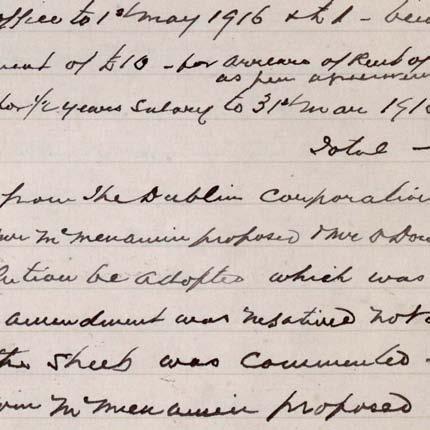 office to 1st May 1916 & £1 –
ment of £10 – for arrears of Rent of
as per agreement
for ½ years salary to 31st Mar 191
Total –
from the Dublin Corporation
Mr McMenamin proposed & Mr O Do
lution be adopted which was
amendment was negatived not
the Sheep was commented –
McMenamin proposed